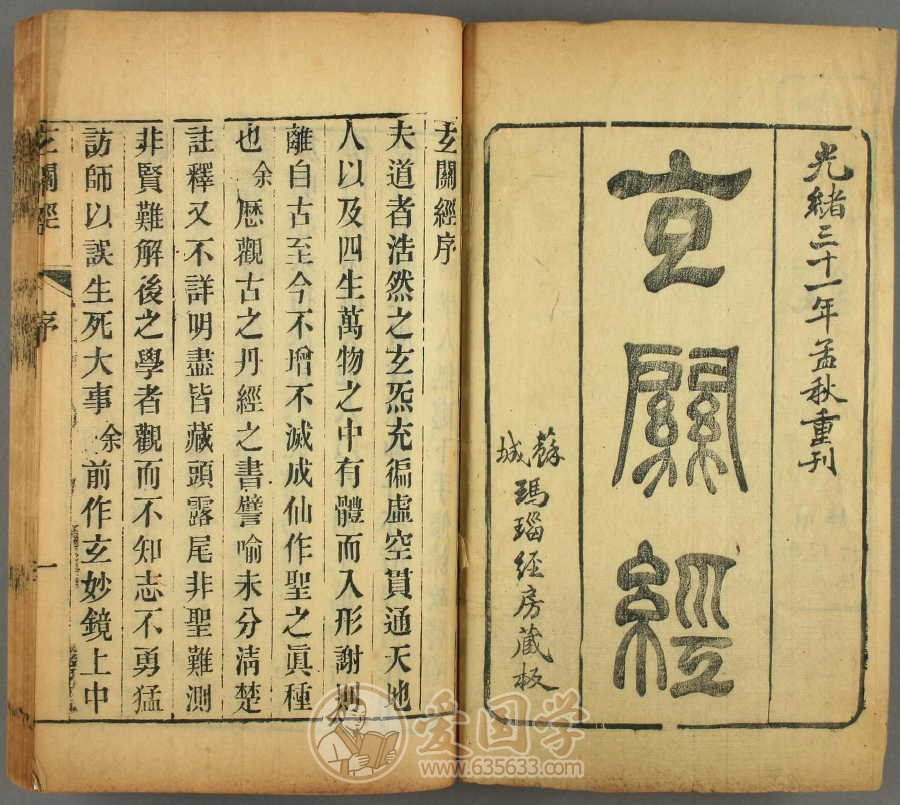 光緒三十一年孟秋重刊
玄關經
蘇城瑪瑙經房藏板
玄關經序
夫道者浩然之玄炁充徧虛空貫通天地
人以及四生萬物之中有體而入形謝則
離自古至今不增不滅成仙作聖之眞種
也余歷觀古之丹經之書譬喻未分淸楚
註釋又不詳明盡皆藏頭露尾非聖難測
非賢難解後之學者觀而不知志不勇猛
訪師以誤生死大事余前作玄妙鏡上中
玄關經 序 一
爱国学
www.635633.com